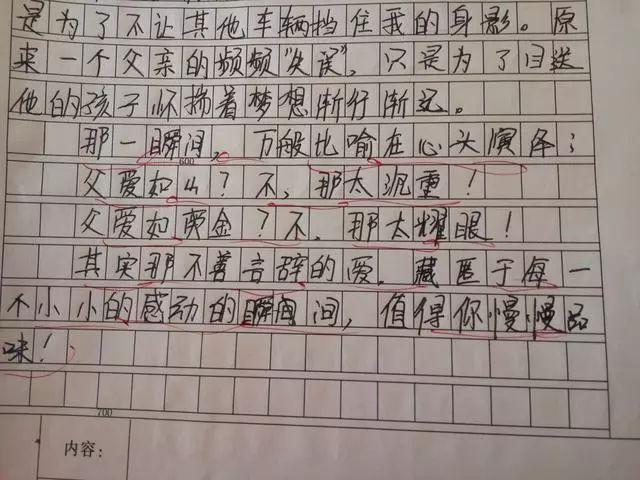 是为了不让其他车辆挡住我的身影。原
来一个父亲的频频“失误”，只是为了目送
他的孩子怀揣着梦想渐行渐远。
那一瞬间，万般比喻在心头演绎：
600
父爱如山？不，那太沉重！
父爱如黄金？不，那太耀眼！
其实那不善言辞的爱，藏匿于每一
个小小的感动的瞬间间，值得你慢慢品
味！
700
内容：